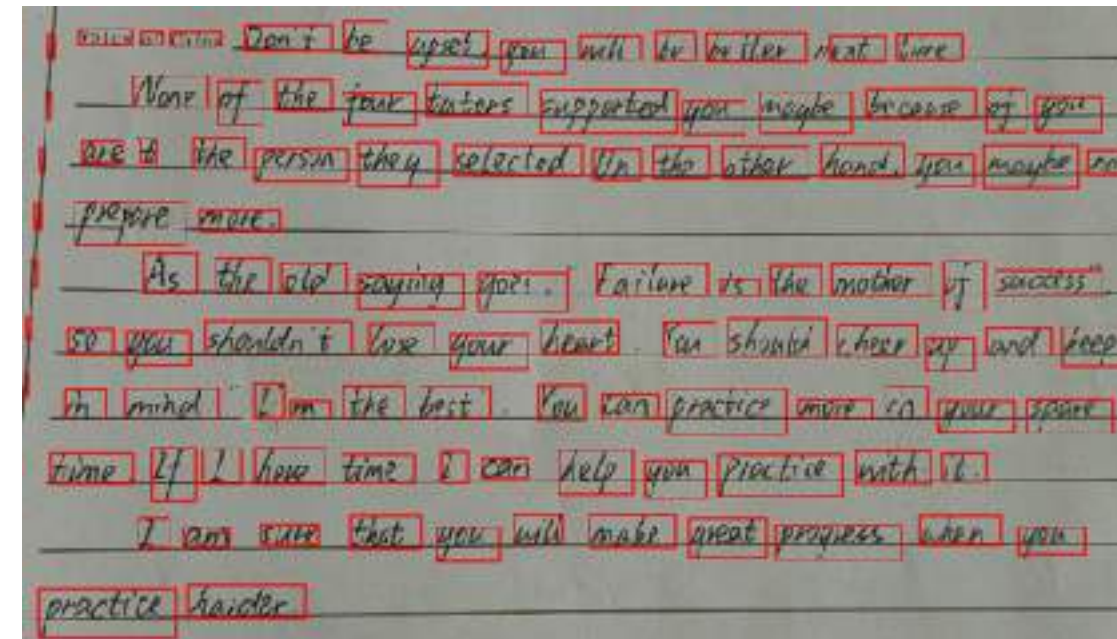 Don't be upset, you will be better next time
None of the four tutors supported you maybe because of you
are t the person they selected On the other hand, you maybe
prepare more.
As the old saying goes. Failure is the mother of success"
so you shouldn't lose your heart. You should cheer up and keep
in mind "I'm the best". You can practice more in your spare
time. If I have time I can help you practice with it.
I am sure that you will make great progress when you
practice harder